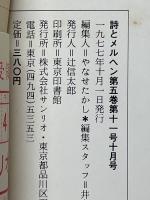 詩とメルヘン第五巻第十一号十月号
一九七七年十月一日発行
編集＝やなせたかし＊編集スタッフ＝井
発行人＝辻信太郎
印刷所＝東京印書館
発行所＝株式会社サンリオ・東京都品川区
電話＝東京(四九四)五三五三
定価＝三八〇円